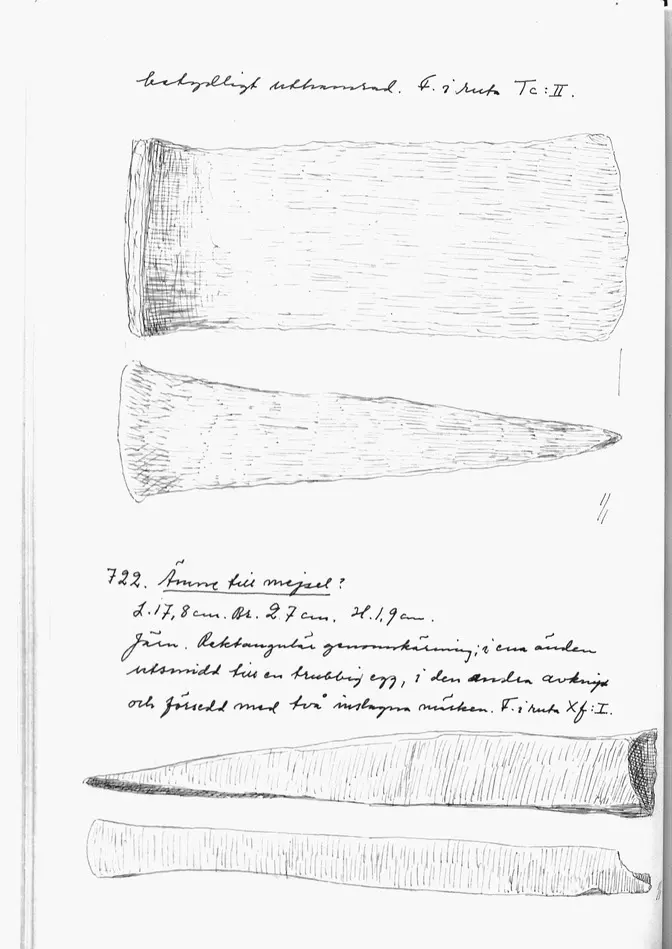 betydligt uthamrad. F. i ruta Tc:II.
1/1
722. Ämne till mejsel?
L. 17,8 cm. Br. 2,7 cm. H. 1,9 cm.
Järn. Rektangulär genomskärning; i ena änden
utsmidd till en trubbig egg, i den andra
och försedd med två inslagna märken. F. i ruta Xf:I.